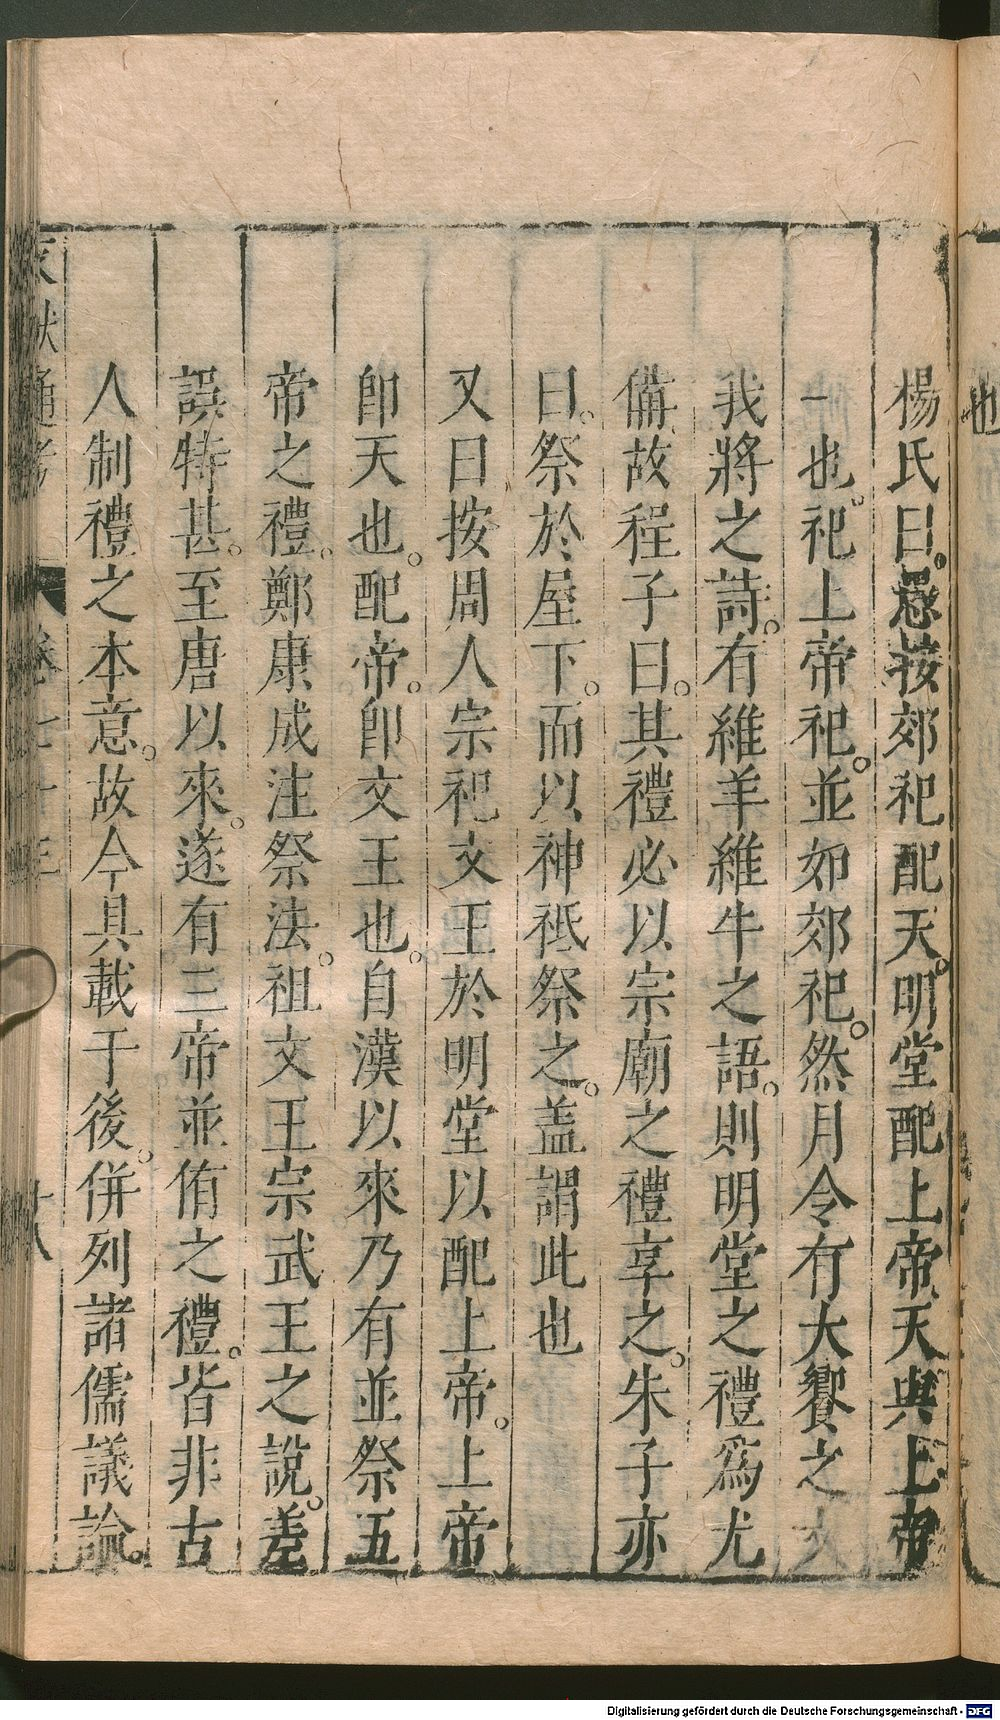 楊氏曰。愚按郊祀配天。明堂配上帝。天與上帝
一也。祀上帝祀。並如郊祀。然月令有大饗之文
我將之詩。有維羊維牛之語。則明堂之禮爲尤
備故程子曰。其禮必以宗廟之禮享之。朱子亦
曰。祭於屋下。而以神祗祭之。盖謂此也
又曰按周人宗祀文王於明堂以配上帝。上帝
卽天也。配帝。卽文王也。自漢以來乃有並祭五
帝之禮。鄭康成注祭法。祖文王宗武王之說。差
誤特甚。至唐以來。遂有三帝並侑之禮。皆非古
人制禮之本意。故今具載于後。併列諸儒議論。
文献通考 卷七十三 十八
也
Digitalisierung gefördert durch die Deutsche Forschungsgemeinschaft - DFG